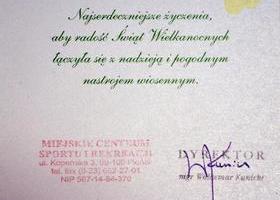 Najserdeczniejsze życzenia,
aby radość Świąt Wielkanocnych
łączyła się z nadzieją i pogodnym
nastrojem wiosennym.
MIEJSKIE CENTRUM
SPORTU I REKREACJI
ul. Kopernika 3, 09-100 Płońsk
tel. fax (0-23) 662-27-01
NIP 567-14-84-370
DYREKTOR
mgr Waldemar Kunicki